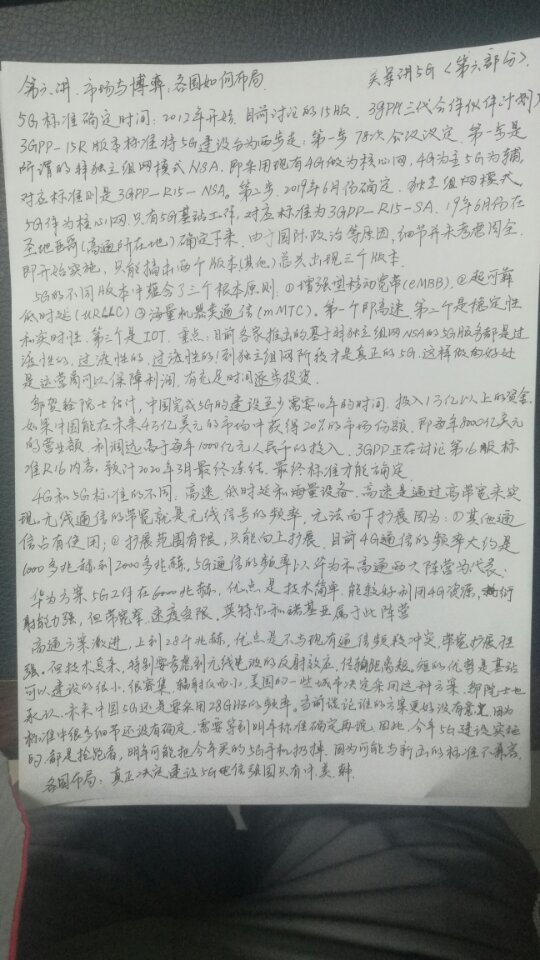 第六讲. 市场与博弈, 各国如何布局. 吴军讲5G《第六部分》
5G标准确定时间: 2012年开始. 目前讨论的15版. 3GPP(三代合作伙伴计划)
3GPP-15R版本标准将5G建设台为两步走: 第一步78次会议决定. 第一步是
所谓的非独立组网模式NSA. 即采用现有4G做为核心网. 4G为主5G为辅,
对应标准则是3GPP-R15-NSA。第二步. 2019年6月份确定. 独立组网模式,
5G作为核心网. 只有5G基站工作, 对应标准为3GPP-R15-SA. 19年6月份在
圣地亚哥(高通所在地)确定下来. 由于国际政治等原因, 细节并未考虑周全.
即开始实施, 只能搞出两个版本(其他)总共出现三个版本.
5G的不同版本中蕴含了三个根本原则. ①增强型移动宽带(eMBB). ②超可靠
低时延(uRLLC) ③海量机器类通信(mMTC)。第一个即高速. 第二个是稳定性
和实时性. 第三个是IOT. 重点: 目前各家推出的基于非独立组网NSA的5G服务都是过
渡性的, 过渡性的, 过渡性的! 到独立组网阶段才是真正的5G. 这样做的好处
是运营商可以保障利润. 有充足时间逐步投资.
邬贺铨院士估计, 中国完成5G的建设至少需要10年的时间. 投入1万亿以上的资金.
如果中国能在未来4万亿美元的市场中获得20%的市场份额. 即每年8000亿美元
的营业额. 利润远高于每年1000亿元人民币的投入. 3GPP正在讨论第16版标
准R16内容, 预计2020年3月最终冻结. 最终标准才能确定.
4G和5G标准的不同: 高速. 低时延和海量设备. 高速是通过高带宽来实
现. 无线通信的带宽就是无线信号的频率, 无法向下扩展因为: ①其他通
信占有使用; ②扩展范围有限. 只能向上扩展. 目前4G通信的频率大约是
1000多兆赫到2000多兆赫. 5G通信的频率以华为和高通两大阵营为代表.
华为方案5G工作在6000兆赫. 优点是技术简单. 能较好利用4G资源, 衍
射能力强, 但带宽窄. 速度受限. 英特尔和诺基亚属于此阵营
高通方案激进, 上到28千兆赫. 优点是不与现有通信频段冲突, 带宽扩展性
强. 但技术复杂, 特别要考虑到无线电波的反射效应, 传输距离短. 短的优势是基站
可以建设的很小. 很密集, 辐射反而小. 美国的一些城市决定采用这种方案. 邬院士也
承认. 未来中国5G还是要采用28GHz的频率. 当前谈论谁的方案更好没有意义. 因为
标准中很多细节还没有确定. 需要等到明年标准确定再说. 因此, 今年5G建设实施
的. 都是抢跑者, 明年可能把今年买的5G手机扔掉. 因为可能与新出的标准不兼容.
各国布局: 真正决定建设5G电信强国只有中. 美. 韩.